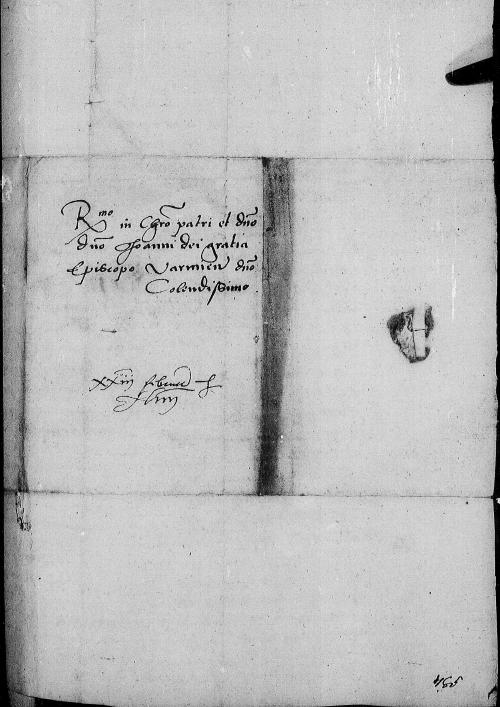 R^mo in Chro patri et dno
dno Joanni dei gratia
Episcopo Varmien dno
Colendissimo
xxiii